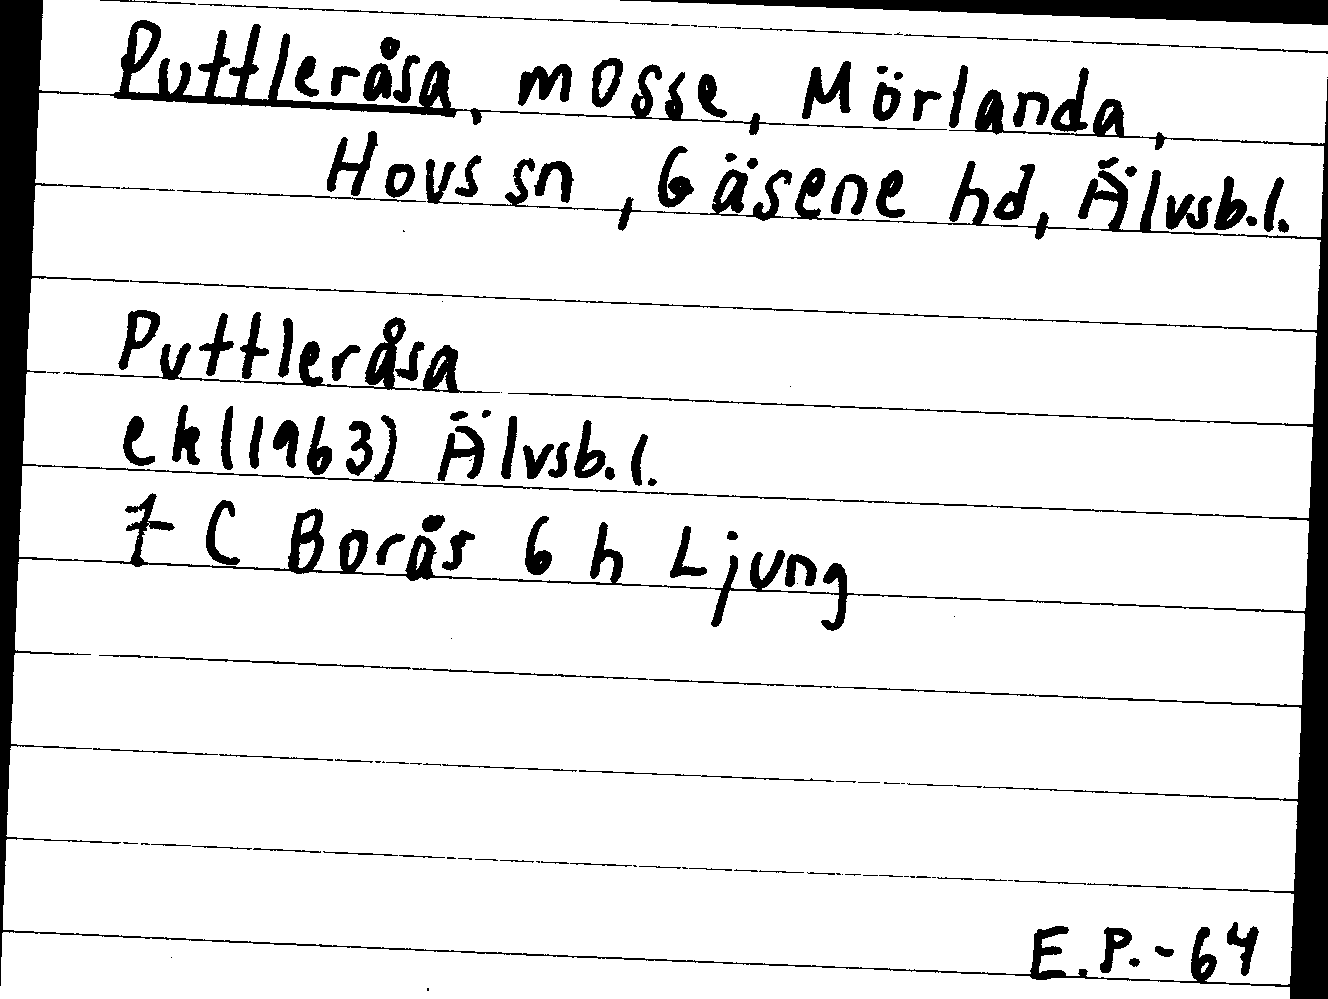 Puttleråsa, mosse, Mörlanda,
Hovs sn, Gäsene hd, Älvsb.l.
Puttleråsa
ek (1963) Älvsb.l.
7 C Borås 6 h Ljung
E.P.-64